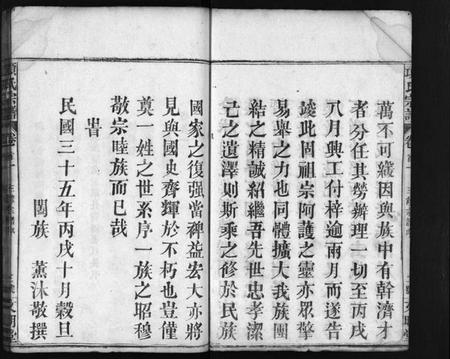 萬不可緩因與族中有幹濟才
者分任其勞辦理一切至丙戌
八月興工付梓逾兩月而遂告
竣此固祖宗阿護之靈亦眾擎
易舉之力也同體擴大我族團
結之精誠紹繼吾先世忠孝潔
己之遺澤則斯乘之修於民族
國家之復强當裨益宏大亦將
見與國史齊輝於不朽也豈僅
奠一姓之世系序一族之昭穆
敬宗睦族而已哉
旹
民國三十五年丙戌十月穀旦
闔族 薰沐敬撰